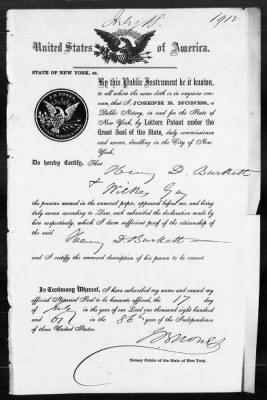 July 18. 1912
United States of America.
STATE OF NEW YORK, ss.
By this Public Instrument be it known,
to all whom the same doth or in anywise con-
cern, that I JOSEPH B. NONES, a
Public Notary, in and for the State of
New York, by Letters Patent under the
Great Seal of the State, duly commissioned
and sworn, dwelling in the City of New
York.
Do hereby Certify, That
Henry D. Burkett
& Wilkes Gay
the persons named in the annexed paper, appeared before me, and being
duly sworn according to Law, each subscribed the declaration made by
him respectively, which I deem sufficient proof of the citizenship of the
said Henry D Burkett
and I certify the annexed description of his person to be correct.
In Testimony Whereof, I have subscribed my name and caused my
official Notarial Seal to be hereunto affixed, the 17 day
of July in the year of our Lord one thousand eight hundred
and 61 in the 86th year of the Independence
of these United States.
JB Nones
Notary Public of the State of New York.